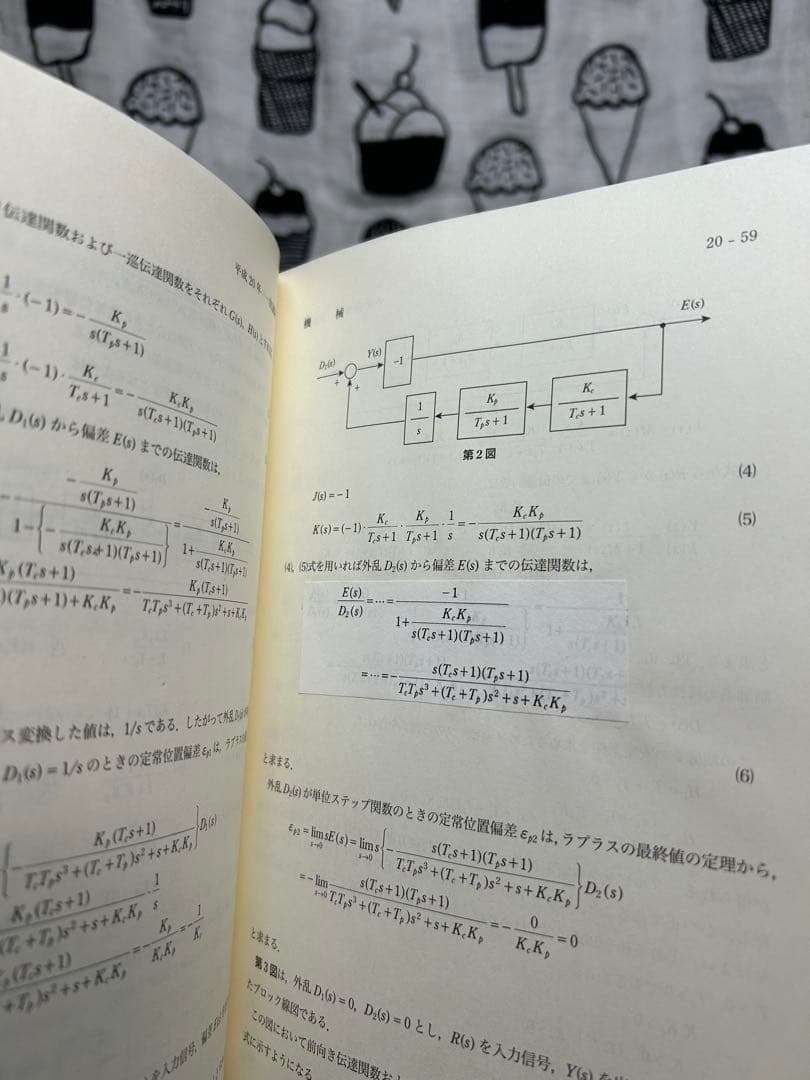 伝達関数および一巡伝達関数をそれぞれG(s), H(s)と
平成20年
1/s・(−1)=−K_p/s(T_ps+1)
1/s・(−1)・K_c/T_cs+1=−K_cK_p/s(T_cs+1)(T_ps+1)
D₁(s)から偏差E(s)までの伝達関数は,
−K_p/s(T_ps+1)/1−{−K_cK_p/s(T_cs+1)(T_ps+1)}=−K_p/s(T_ps+1)/1+K_cK_p/s(T_cs+1)(T_ps+1)
K_p(T_cs+1)/)(T_ps+1)+K_cK_p=−K_p(T_cs+1)/T_cT_ps³+(T_c+T_p)s²+s+K_cK_p
ス変換した値は, 1/sである. したがって外乱D₁(s)が
D₁(s)=1/sのときの定常位置偏差ε_p1は, ラプラスの
{−K_p(T_cs+1)/T_cT_ps³+(T_c+T_p)s²+s+K_cK_p}D₁(s)
K_p(T_cs+1)/(T_c+T_p)s²+s+K_cK_p・1/s
K_p(T_cs+1)/+T_p)s²+s+K_cK_p=−K_p/K_cK_p=−1/K_c
を入力信号, 偏差
20−59
機 械
D₂(s)
+
+
Y(s)
−1
E(s)
1/s
K_p/T_ps+1
K_c/T_cs+1
第2図
J(s)=−1 (4)
K(s)=(−1)・K_c/T_cs+1・K_p/T_ps+1・1/s=−K_cK_p/s(T_cs+1)(T_ps+1) (5)
(4), (5)式を用いれば外乱D₂(s)から偏差E(s)までの伝達関数は,
E(s)/D₂(s)=…=−1/1+K_cK_p/s(T_cs+1)(T_ps+1)
=…=−s(T_cs+1)(T_ps+1)/T_cT_ps³+(T_c+T_p)s²+s+K_cK_p
(6)
と求まる.
外乱D₂(s)が単位ステップ関数のときの定常位置偏差ε_p2は, ラプラスの最終値の定理から,
ε_p2=lim_{s→0}sE(s)=lim_{s→0}s{−s(T_cs+1)(T_ps+1)/T_cT_ps³+(T_c+T_p)s²+s+K_cK_p}D₂(s)
=−lim_{s→0}s(T_cs+1)(T_ps+1)/T_cT_ps³+(T_c+T_p)s²+s+K_cK_p=−0/K_cK_p=0
と求まる.
第3図は, 外乱D₁(s)=0, D₂(s)=0とし, R(s)を入力信号, Y(s)を
たブロック線図である.
この図において前向き伝達関数およ
式に示すようになる.